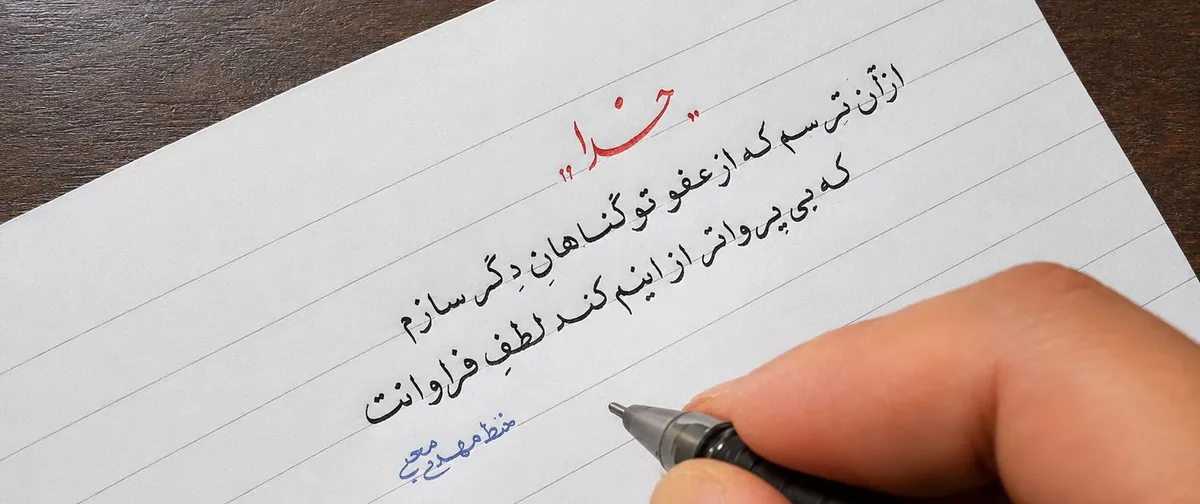 „خدا„
از آن ترسم که از عفو تو گناهانِ دِگر سازم
که بی‌پرواتر از اینم کند لطفِ فراوانت
مهدی